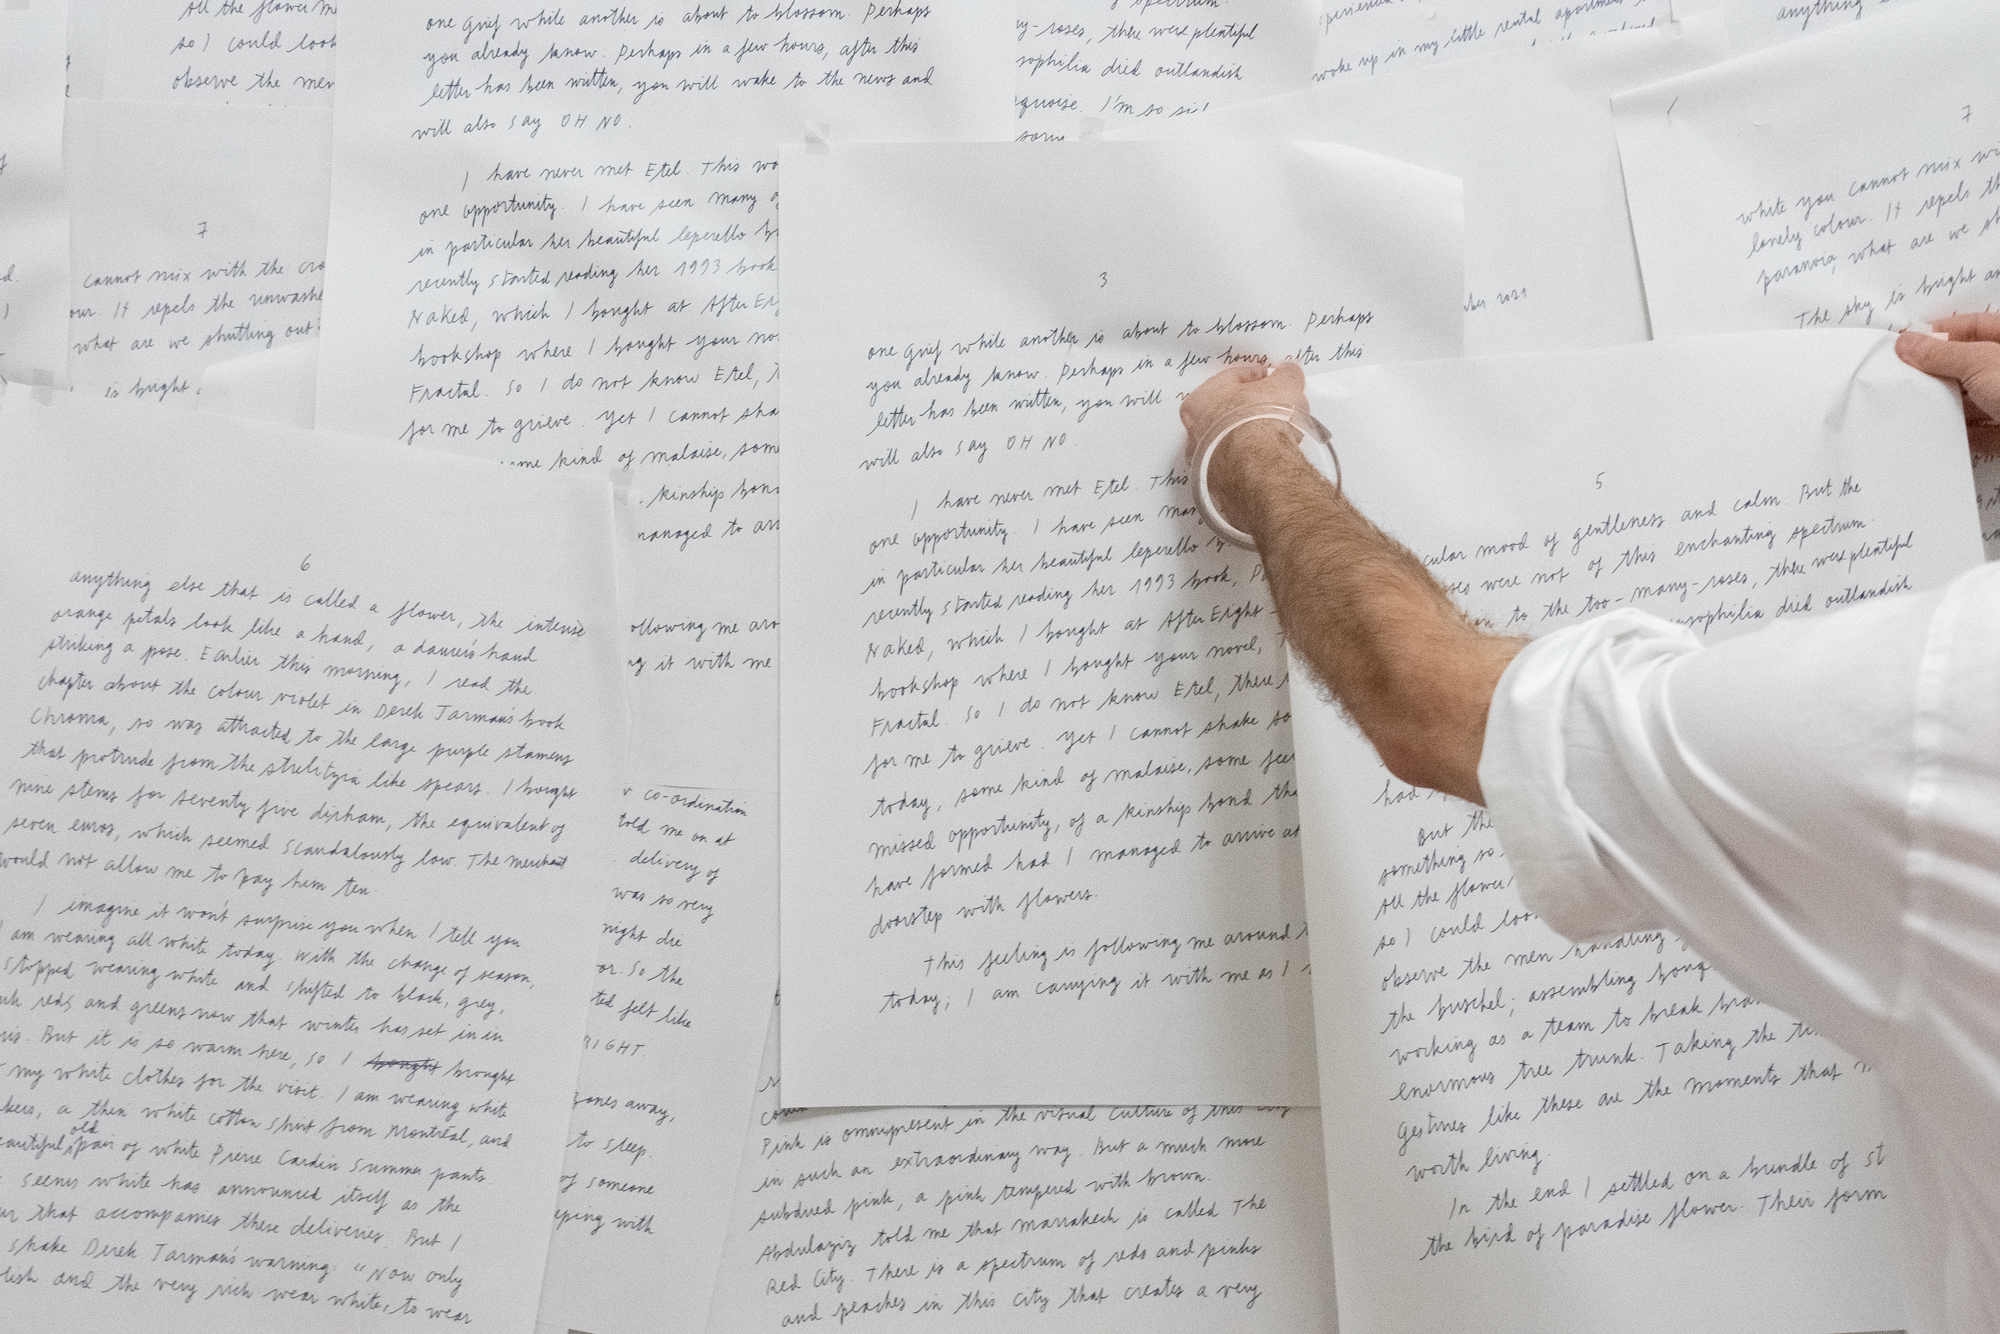 all the flower
so I could look
observe the men
7
cannot mix with the
our. It repels the unwashed
what are we shutting out
is bright
one grief while another is about to blossom. Perhaps
you already know. Perhaps in a few hours, after this
letter has been written, you will wake to the news and
will also say OH NO.
I have never met Etel. This
one opportunity. I have seen many
in particular her beautiful leperello
recently started reading her 1993 book
Naked, which I bought at After
bookshop where I bought your
Fractal. So I do not know Etel,
for me to grieve. Yet I cannot
some kind of malaise, some
kinship bond
managed to
following me
it with me
spectrum.
-roses, there were plentiful
sophilia died outlandish
I'm so
woke up in my little rental apartment
anything
7
white you cannot mix
lonely colour. It repels
paranoia, what are we
The sky is bright
2021
3
one grief while another is about to blossom. Perhaps
you already know. Perhaps in a few hours, after this
letter has been written, you will
will also say OH NO.
I have never met Etel. This
one opportunity. I have seen many
in particular her beautiful leperello
recently started reading her 1993 book,
Naked, which I bought at After Eight
bookshop where I bought your novel,
Fractal. So I do not know Etel, there
for me to grieve. Yet I cannot shake
today, some kind of malaise, some
missed opportunity, of a kinship bond
have formed had I managed to arrive at
doorstep with flowers.
This feeling is following me around
today; I am carrying it with me as I
5
mood of gentleness and calm. But the
were not of this enchanting spectrum.
to the too-many-roses, there were plentiful
sophilia died outlandish
had
But the
something so
All the flower
so I could look
observe the men handling
the buschel; assembling
working as a team to break
enormous tree trunk. Taking the
Gestures like these are the moments that
worth living.
In the end I settled on a bundle of
the bird of paradise flower. Their form
6
anything else that is called a flower, the intense
orange petals look like a hand, a dancer's hand
striking a pose. Earlier this morning, I read the
chapter about the colour violet in Derek Jarman's book
Chroma, so was attracted to the large purple stamens
that protrude from the strelitzia like spears. I bought
nine stems for seventy five dirham, the equivalent of
seven euros, which seemed scandalously low. The merchant
would not allow me to pay him ten.
I imagine it won't surprise you when I tell you
I am wearing all white today. With the change of season,
stopped wearing white and shifted to black, grey,
reds and greens now that winter has set in in
But it is so warm here, so I bought brought
my white clothes for the visit. I am wearing white
a thin white cotton shirt from Montréal, and
beautiful, old pair of white Pierre Cardin summer pants.
seems white has announced itself as the
that accompanies these deliveries. But I
shake Derek Jarman's warning: "Now only
and the very rich wear white, to wear
co-ordination
told me on at
delivery of
was so very
night die
So the
felt like
zones away,
to sleep.
of someone
with
Pink is omnipresent in the visual culture of this city
in such an extraordinary way. But a much more
subdued pink, a pink tempered with brown.
Abdulaziz told me that Marrakech is called The
Red City. There is a spectrum of reds and pinks
and peaches in this city that creates a very